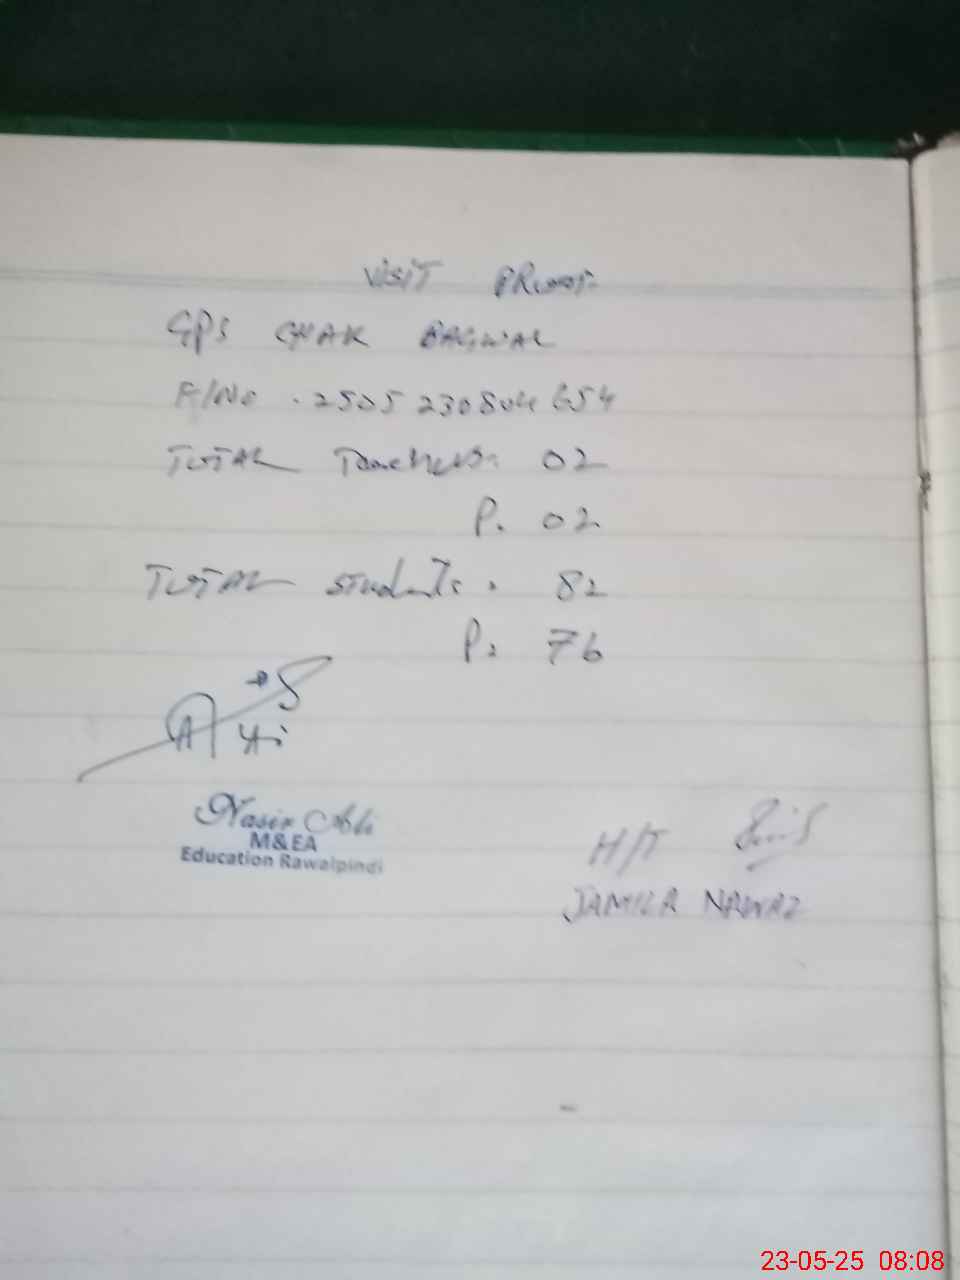 VISIT PROOF
GPS CHAK BAGWAL
F/No . 2505230804654
TOTAL Teachers: 02
P. 02
TOTAL Students . 82
P: 76
Nasir Ali
M&EA
Education Rawalpindi
H/T
JAMILA NAWAZ
23-05-25 08:08